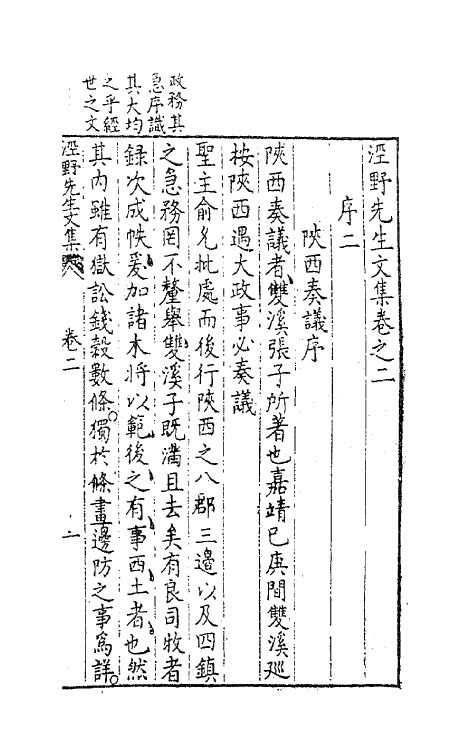 涇野先生文集卷之二
序二
陝西奏議序
陝西奏議者雙溪張子所著也嘉靖己庚間雙溪廵
按陝西遇大政事必奏議
聖主俞允批處而後行陝西之八郡三邉以及四鎮
之急務罔不釐舉雙溪子既滿且去矣有良司牧者
錄次成帙爰加諸木將以範後之有事西土者也然
其内雖有獄訟錢穀數條獨扵條畫邊防之事爲詳
涇野先生文集 卷二 一
政務其
急序識
其大均
之乎經
世之文